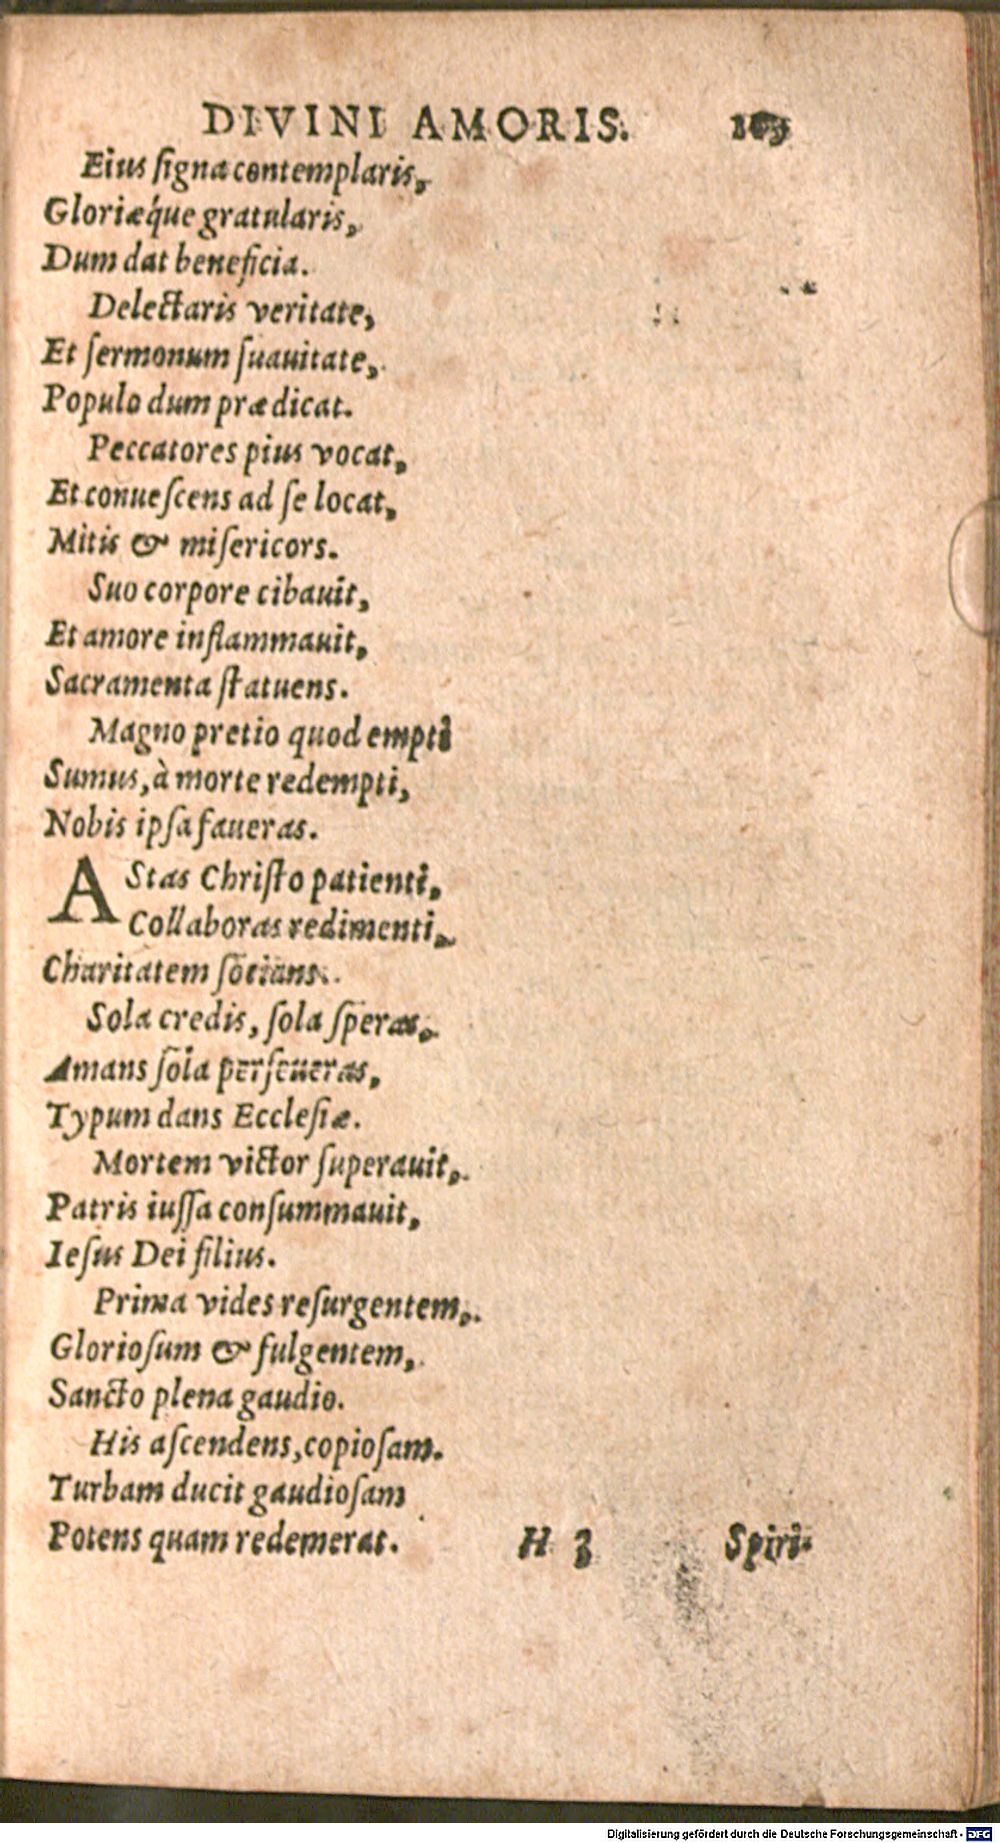 DIVINI AMORIS.
Eius ſigna contemplaris,
Gloriæq́ue gratularis,
Dum dat beneficia.
Delectaris veritate,
Et ſermonum ſuauitate,
Populo dum prædicat.
Peccatores pius vocat,
Et conueſcens ad ſe locat,
Mitis & miſericors.
Suo corpore cibauit,
Et amore inflammauit,
Sacramenta ſtatuens.
Magno pretio quod empti
Sumus, à morte redempti,
Nobis ipſa faueras.
AStas Chriſto patienti,
Collaboras redimenti,
Charitatem ſocians.
Sola credis, ſola ſperas,
Amans ſola perſeueras,
Typum dans Eccleſiæ.
Mortem victor ſuperauit,
Patris iuſſa conſummauit,
Ieſus Dei filius.
Prima vides reſurgentem,
Glorioſum & fulgentem,
Sancto plena gaudio.
His aſcendens, copioſam.
Turbam ducit gaudioſam
Potens quam redemerat.
H 3 Spiri-
Digitalisierung gefördert durch die Deutsche Forschungsgemeinschaft - DFG